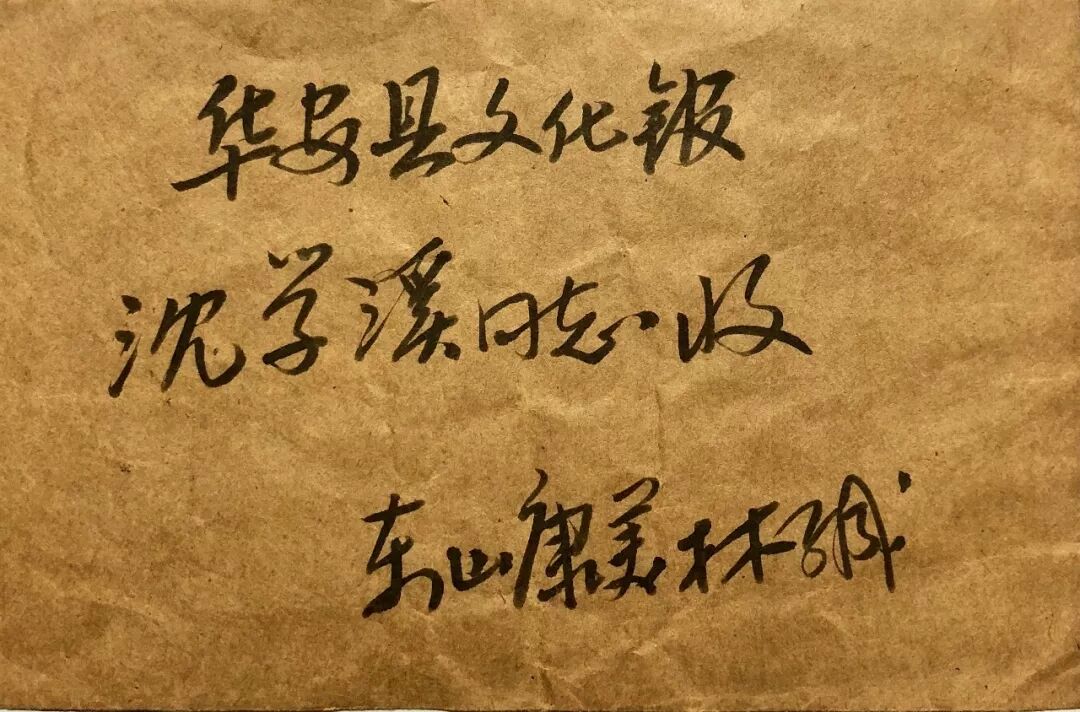 华安县文化
沈学溪同志收
东山康美林